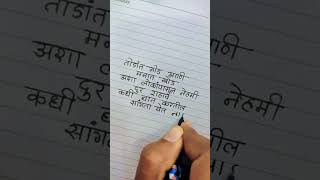 तोडांत गोड आणि
मनात खोड
अशा लोकांपासून नेहमी
दुर राहावे
कधी घात करतील
सांगता येत ना